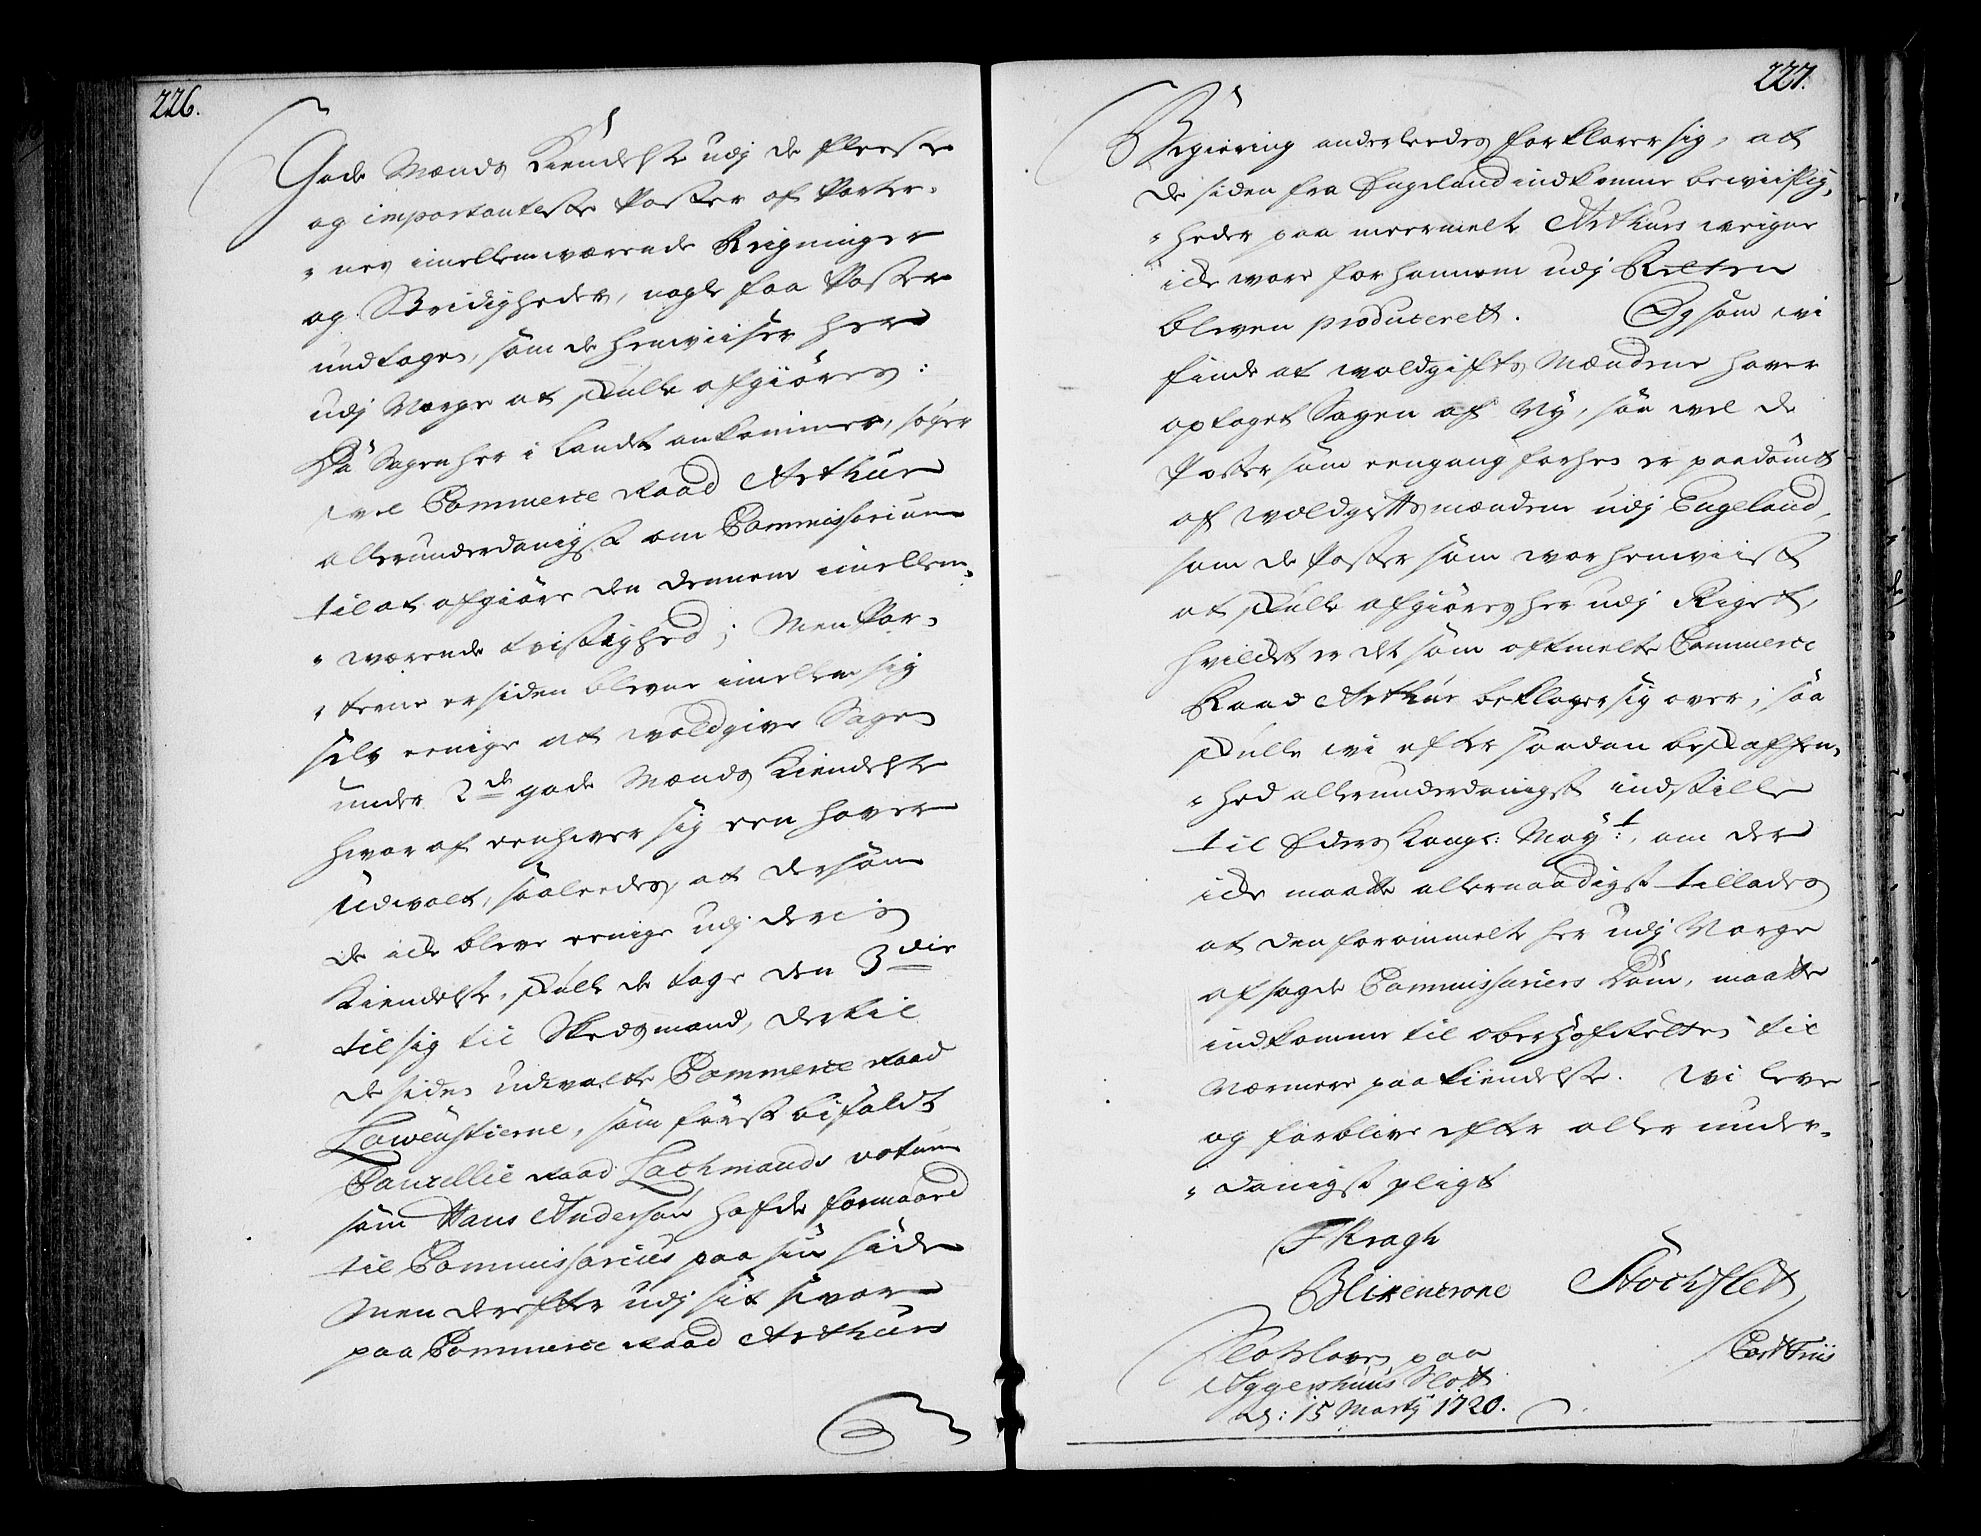 226.
Gode Mænds Kiendelse udj de fleeste
og importanteste Poster af Parter-
" nes imellemværende Reigninger
og Stridigheder, nogle faa Poster
undtagen, som de henviiser her
udj Norge at skulle afgiøres:
Da Sagen her i Landet ankommer, søger
vel Commerce Raad Arthur
allerunderdanigst om Commissarium
til at afgiøre den dennem imellem-
" værende tvistighed; Men Par-
" terne er siden blevne imellem sig
selv eenige at voldgive Sagen
under 2de gode Mænds Kiendelse
hvoraf eenhver sig een haver
Udvalt, saaledes, at dersom
de icke bleve eenige udj deris
Kiendelse, skulle de tage den 3die
til sig til Skedsmand, dertil
de siden udvalte Commerce Raad
Lowenstierne, som først bifaldt
Cancellie Raad Lachmands votum
som Hans Andersøn hafde formaaed
til Commissarius paa sin side
Men derefter udj sit svar
paa Commerce Raad Arthurs
227.
Begiering anderleedes forklarer sig, at
de siden fra Engeland indkomne beviislig-
" heder paa meermelte Arthurs veigne
icke vare for hannem udj Retten
bleven produceret. Og som vi
finde at voldgifts Mændene haver
optaget Sagen af Ny, saa vel de
Poster som eengang forhen er paadømt
af voldgiftsmændene udj Engeland,
som de Poster som var henviist
at skulle afgiøres her udj Riget,
hvilcket er det som oftmelte Commerce
Raad Arthur beklager sig over; saa
skulle vi efter saadan beskaffen-
" hed allerunderdanigst indstille
til Eders Kongl: May:t, om der
icke maatte allernaadigst tillades
at den forommelte her udj Norge
afsagde Commissariers Dom, maatte
indkomme til oberhofRetten til
nærmere paakiendelse. Vi leve
og forblive efter aller under-
" danigst pligt
F Kragh
Blixencrone Stockflet
Cort Friis
Slotzloven paa
Aggershuus Slott
d: 15 Martij 1720.